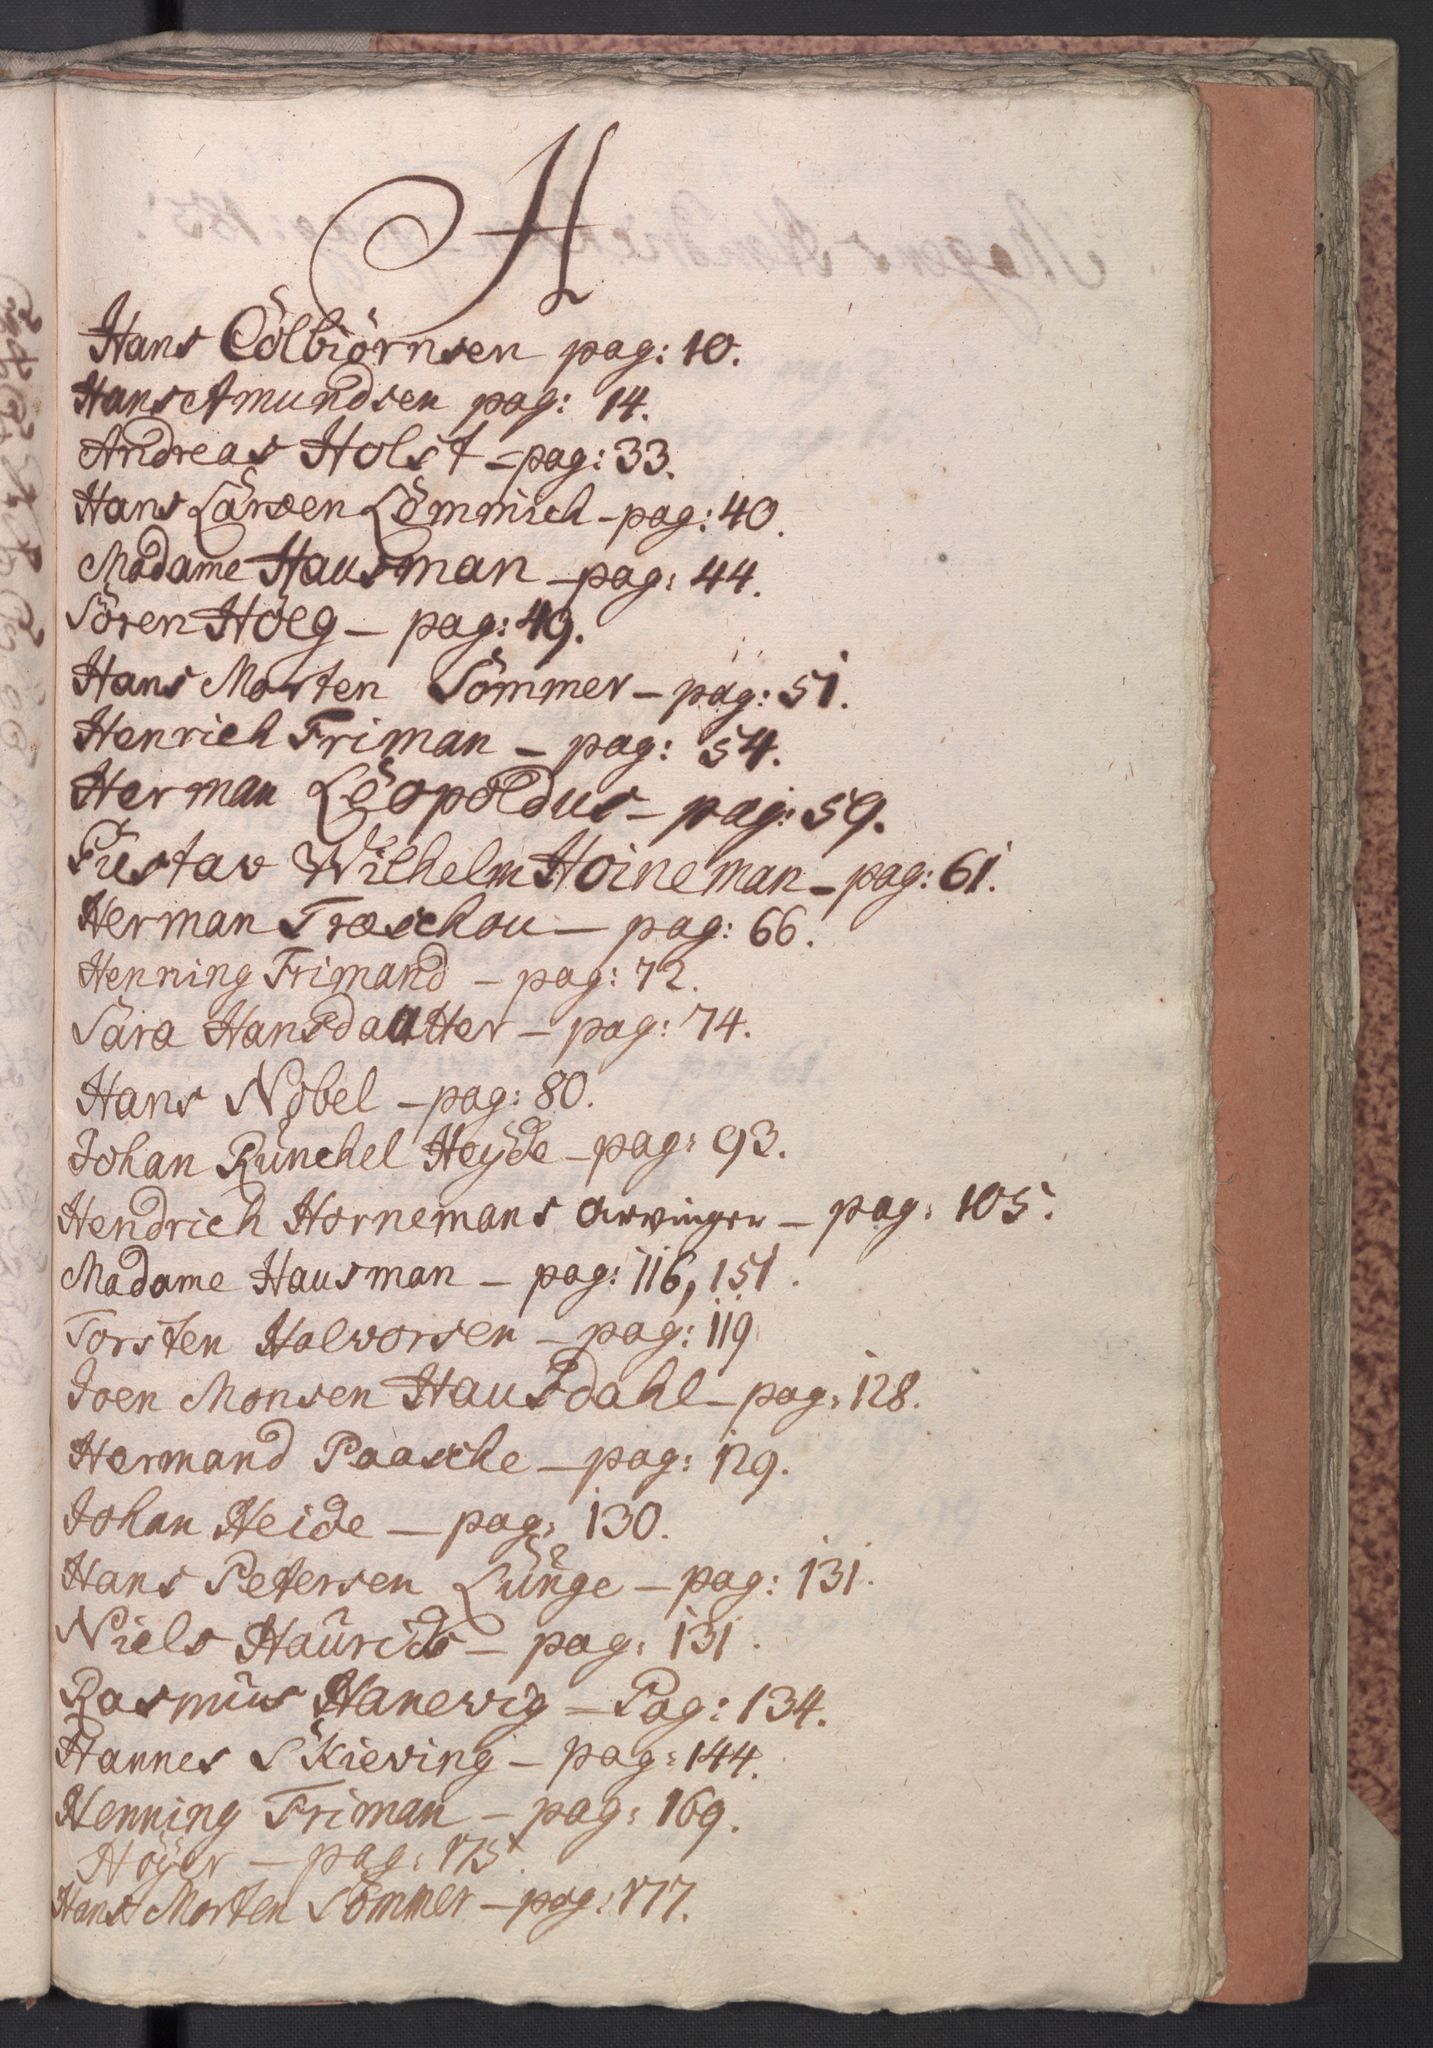 H
Hans Cölbiörnsen pag: 10.
Hans Amundsen pag: 14.
Andreas Holst – pag: 33.
Hans Larsen Lömmich – pag: 40.
Madame Hausman – pag: 44.
Sören Höeg – pag: 49.
Hans Morten Sommer – pag: 51.
Henrich Friman – pag: 54.
Herman Leopoldus – pag: 59.
Gustav Wilhelm Hoineman – pag: 61.
Herman Træschou – pag: 66.
Henning Frimand – pag: 72.
Sara Hansdaatter – pag: 74.
Hans Nobel – pag: 80.
Johan Runchel Heyde – pag: 93.
Hendrich Hornemans Arvinger – pag: 105.
Madame Hausman – pag: 116, 151.
Torsten Halvorsen – pag: 119
Joen Monsen Hausdahl – pag: 128.
Hermand Paasche – pag: 129.
Johan Heide – pag: 130.
Hans Petersen Lunge – pag: 131.
Niels Haurids – pag: 131.
Rasmus Hanevig – Pag: 134.
Hannes Skieving – pag: 144.
Henning Friman – pag: 169.
Höyer – pag: 175.
Hans Morten Sommer – pag: 177.